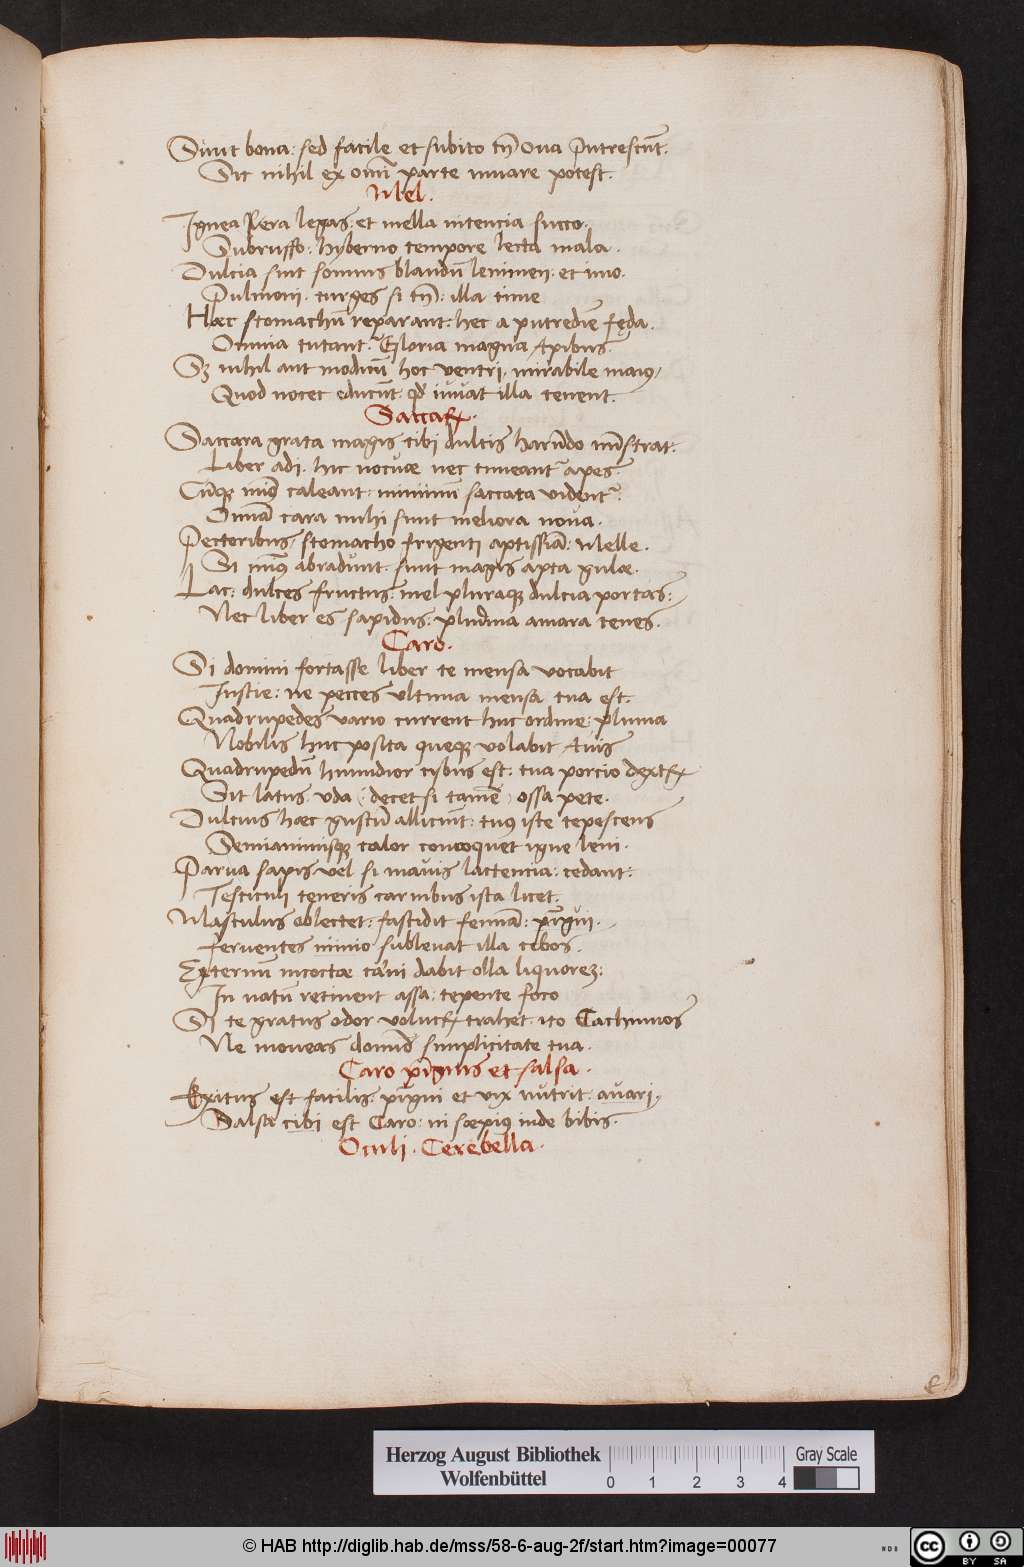 Sunt bona: sed facile et subito tñ Oua putrescũt.
Sic nihil ex omni parte iuuare potest.
Mel.
Ignea Vera legas: et mella nitencia succo.
Subruffo: hyberno tempore lecta mala.
Dulcia sint somnus blandũ lenimen: et imo.
Pulmoni: turges si tñ: illa time
Hæc stomachũ reparant: hec a putredie fęda.
Omnia tutant: Gloria magna, Apibus.
Sʒ nihil aut modicũ hoc ventri: mirabile maiꝰ,
Quod nocet educũt: qd iuuat illa tenent.
Saccaꝝ.
Saccara grata magis tibi dulcis harũdo mĩstrat:
Liber adi: hic nocuæ nec timeantᷣ apes:
Cũqꝫ caleant: minimũ saccata videntᷣ.
Omnia cara mihi sunt meliora noua.
Pectoribus, stomacho frigenti aptissia: Melle.
Si minꝰ abradunt: sunt magis apta gulæ.
Lac: dulces fructus: mel pluraqꝫ dulcia portas:
Nec liber es sapidus: plurima amara tenes.
Caro.
Si domini fortasse liber te mensa vocabit
Inscie: ne pecces vltima mensa tua est.
Quadrupedes vario current huc ordine: pluma
Nobilis huc posita queqꝫ volabit Auis
Quadrupedũ humidior cybus est: tua porcio dextꝝ
Sit latus vda (decet si tamẽ) ossa pete.
Dulcius hæc gustũ alliciũt: tuꝰ iste tepescens
Semianimisqꝫ calor concoquet igne leui.
Parua sapis vel si mauis lactencia: cedant:
Testiculi teneris carnibus ista licet.
Masculus oblectet: fastidit femina: pĩgui.
Feruentes nimio subleuat illa cibos.
Externũ incoctæ carni dabit olla liquorem:
In natũ retinent assa: tepente foco
Si te gratus odor volucꝝ trahet: ito Cachinnos
Ne moueas domũs simplicitate tua.
Caro pĩguis et salsa.
Exitus est facilis: pĩgui et vix nutrit: auari,
Salsa cibi est Caro: ni sæpiꝰ inde bibis.
Oculi. Cerebella.
Herzog August Bibliothek
Wolfenbüttel
0 1 2 3 4
Gray Scale
© HAB http://diglib.hab.de/mss/58-6-aug-2f/start.htm?image=00077
cc BY SA